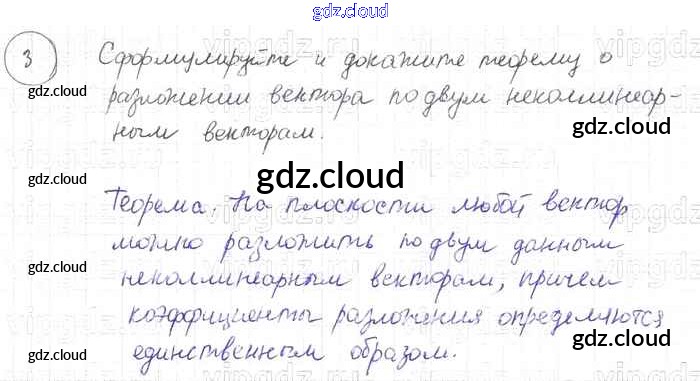 gdz.cloud
3 Сформулируйте и докажите теорему о
разложении вектора по двум неколлинеар-
ным векторам.
gdz.cloud
gdz.cloud
gdz.cloud
gdz.cloud
Теорема. На плоскости любой вектор
gdz.cloud
можно разложить по двум данным
неколлинеарным векторам, причем
gdz.cloud
gdz.cloud
коэффициенты разложения определяются
единственным образом.
gdz.cloud
gdz.cloud